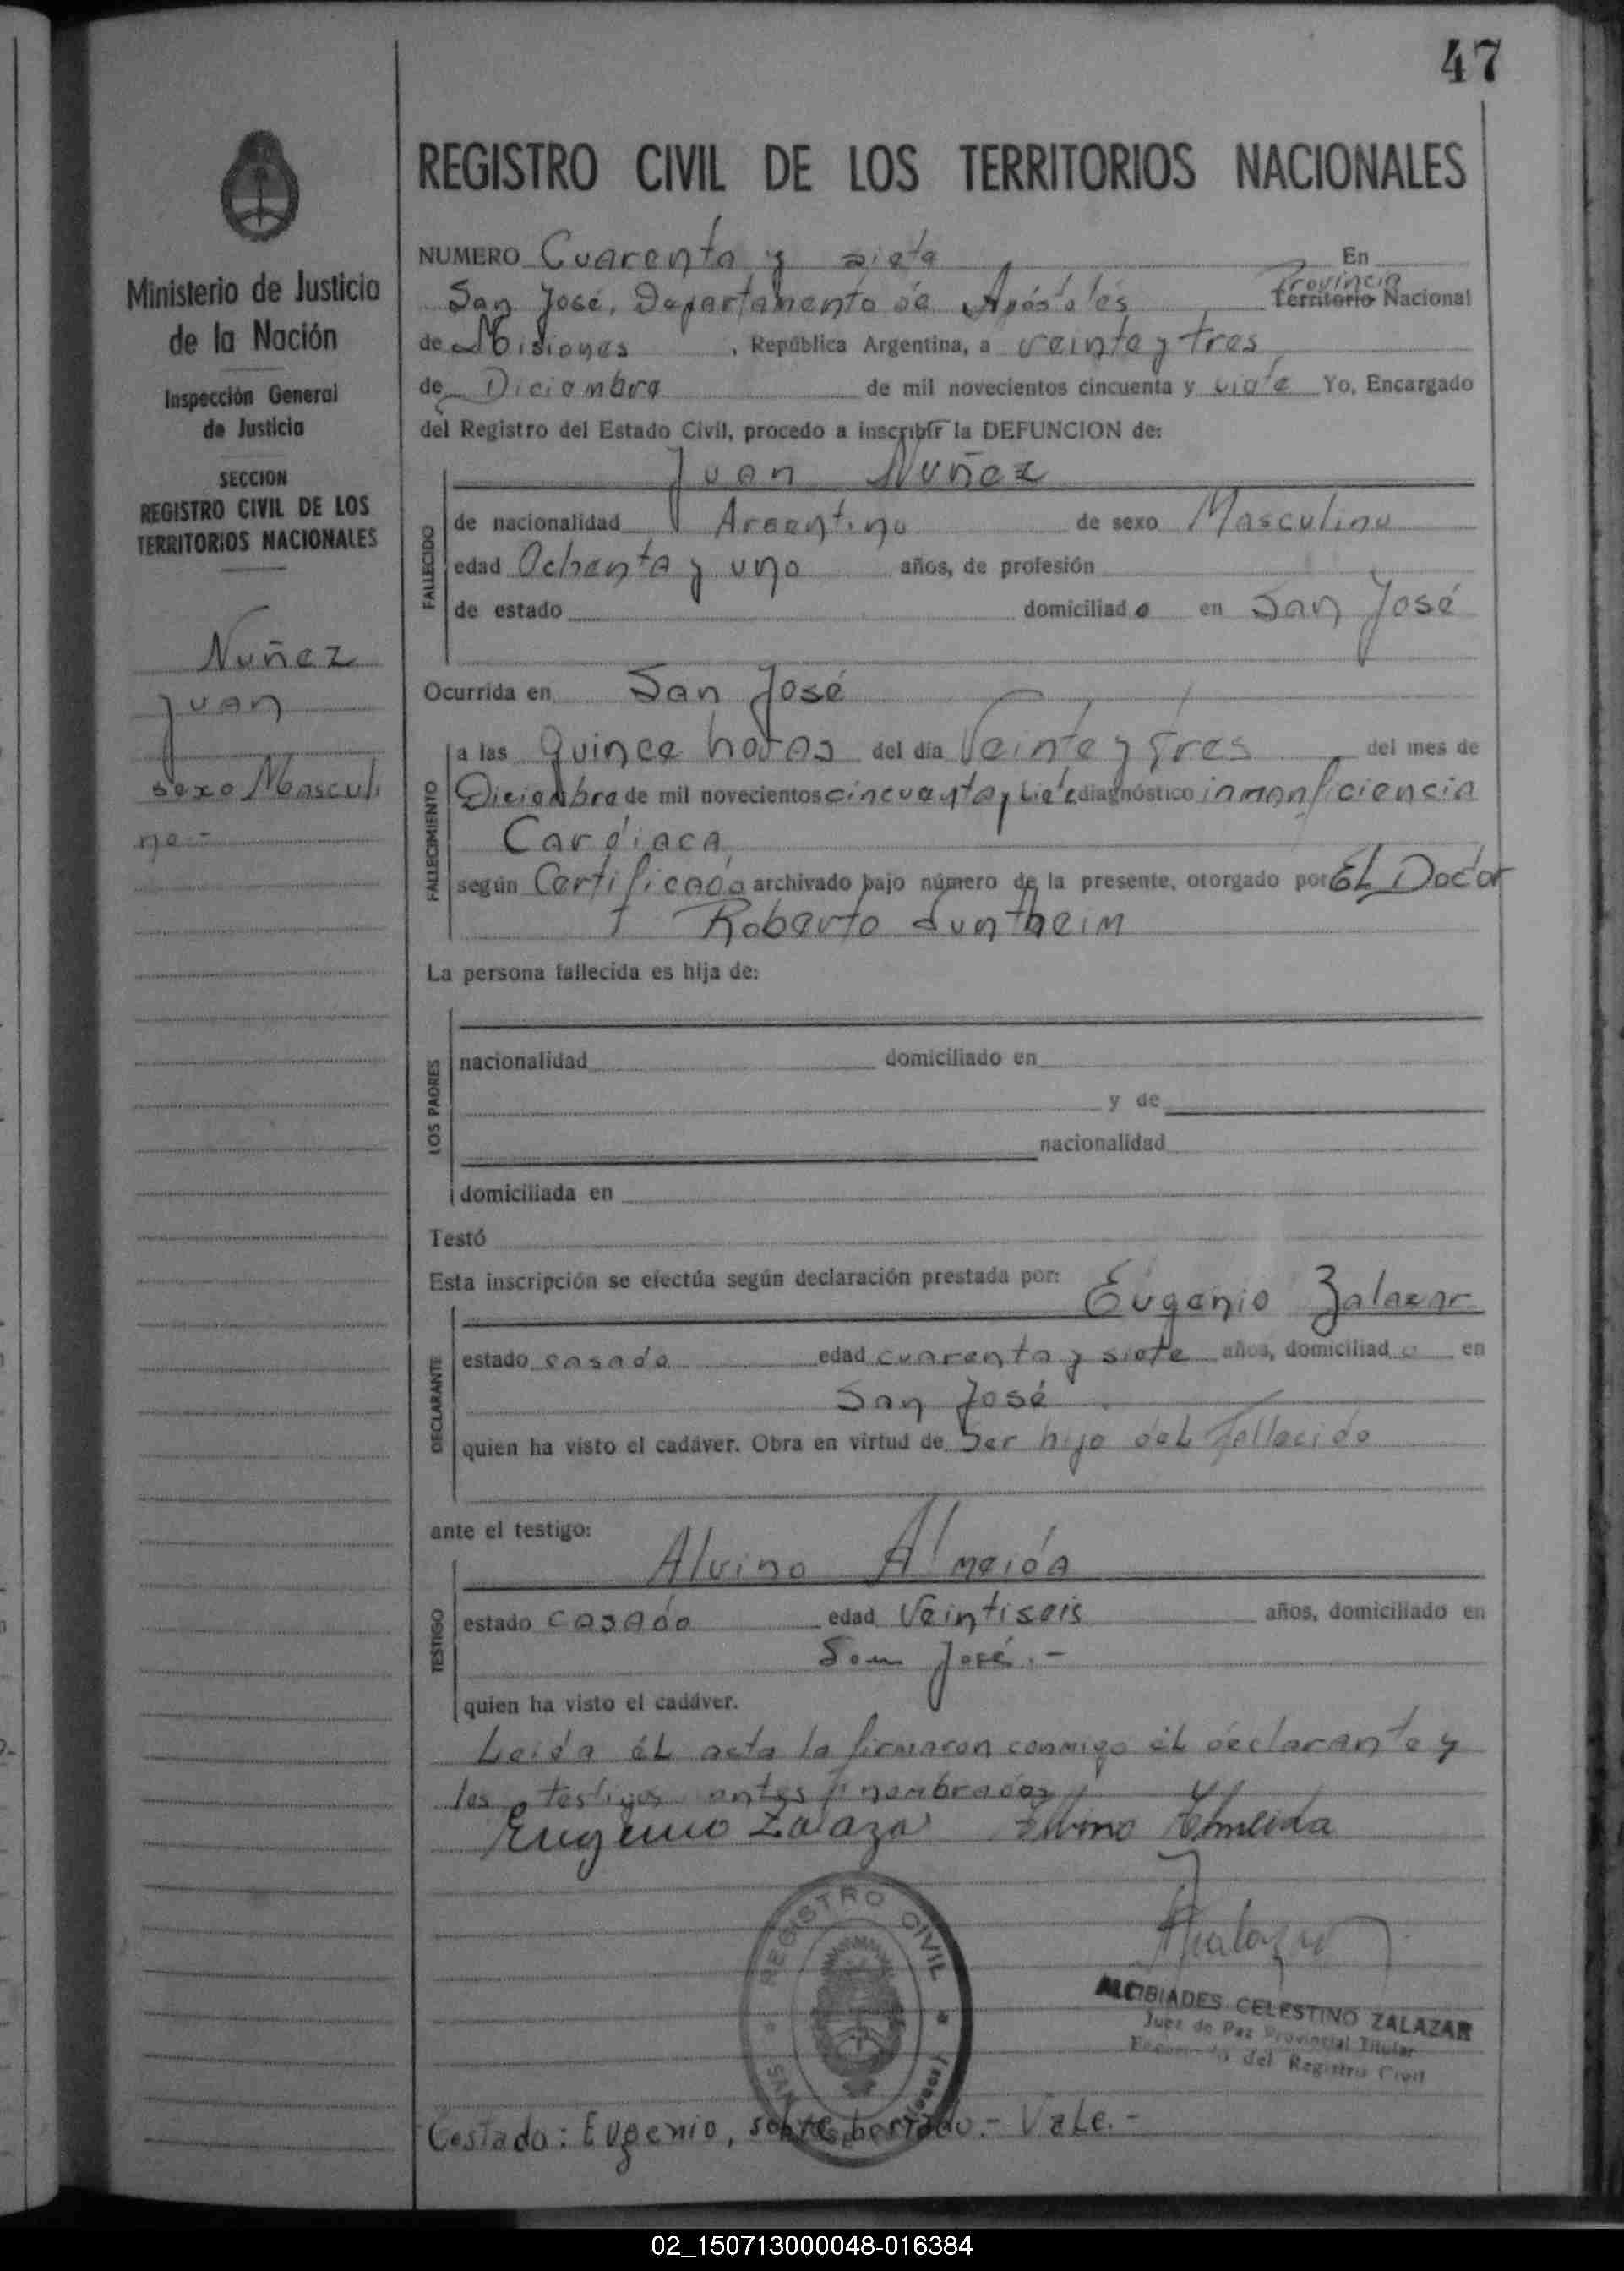 47
REGISTRO CIVIL DE LOS TERRITORIOS NACIONALES
Ministerio de Justicia
de la Nación
Inspección General
de Justicia
SECCION
REGISTRO CIVIL DE LOS
TERRITORIOS NACIONALES
Nuñez
Juan
sexo Masculi
no.-
NUMERO Cuarenta y siete En
San José, Departamento de Apóstoles Provincia Territorio Nacional
de Misiones, República Argentina, a veinte y tres
de Diciembre de mil novecientos cincuenta y siete Yo, Encargado
del Registro del Estado Civil, procedo a inscribir la DEFUNCION de:
FALLECIDO
Juan Nuñez
de nacionalidad Argentino de sexo Masculino
edad Ochenta y uno años, de profesión
de estado domiciliado en San José
Ocurrida en San José
FALLECIMIENTO
a las quince horas del día Veinte y Tres del mes de
Diciembre de mil novecientos cincuenta y siete diagnóstico
Cardiaca
según Certificado archivado bajo número de la presente, otorgado por EL Doctor
Roberto Suntheim
La persona fallecida es hija de:
LOS PADRES
nacionalidad domiciliado en
y de
nacionalidad
domiciliada en
Testó
Esta inscripción se efectúa según declaración prestada por:
DECLARANTE
Eugenio Zalazar
estado casado edad cuarenta y siete años, domiciliado en
San José
quien ha visto el cadáver. Obra en virtud de Ser hijo del Fallecido
ante el testigo:
TESTIGO
Alvino Almeida
estado casado edad Veintiseis años, domiciliado en
San José.-
quien ha visto el cadáver.
Leida el acta la firmaron conmigo el declarante y
los testigos antes nombrados
Eugenio Zalazar Alvino Almeida
REGISTRO CIVIL
SAN JOSE
ALCIBIADES CELESTINO ZALAZAR
Juez de Paz Provincial Titular
Encargado del Registro Civil
Eugenio, sobre borrado.- Vale.-
02_150713000048-016384